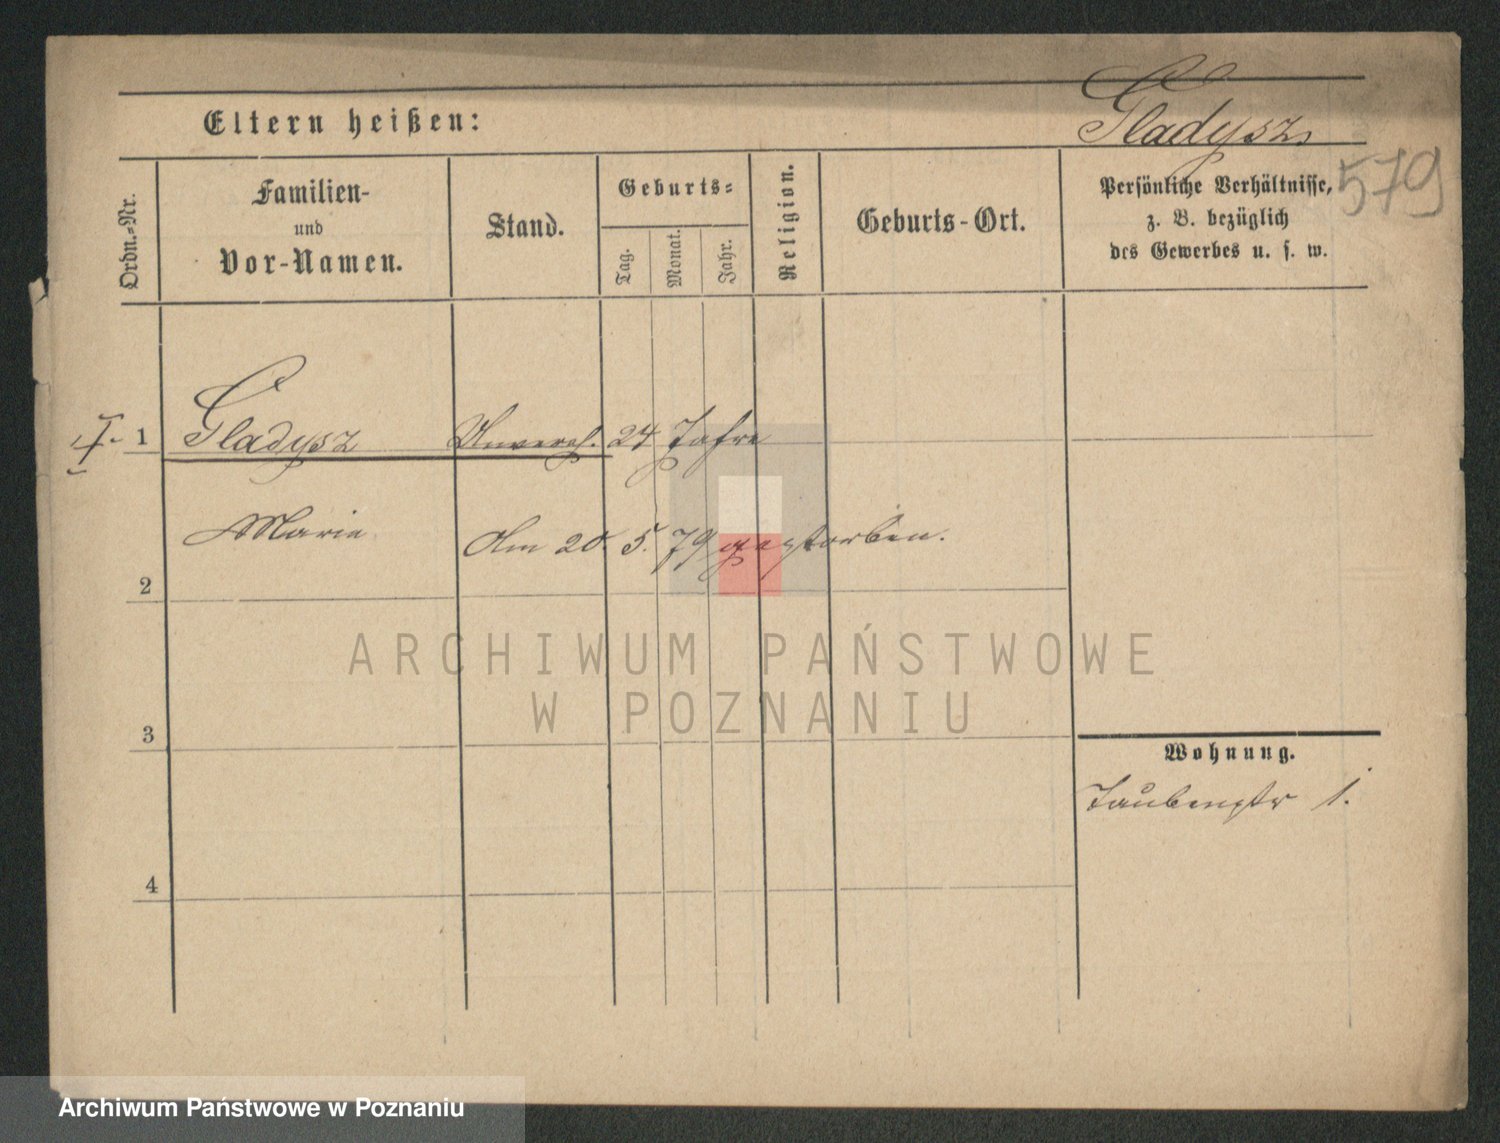 Eltern heißen:
Gladysz
579
Ordn.-Nr.
Familien-
und
Vor-Namen.
Stand.
Geburts-
Tag.
Monat.
Jahr.
Religion.
Geburts-Ort.
Persönliche Verhältnisse,
z. B. bezüglich
des Gewerbes u. s. w.
I. 1 Gladysz Unvereh. 24 Jahre
Marie Am 20. 5. 79 gestorben.
2
ARCHIWUM PAŃSTWOWE
W POZNANIU
3
Wohnung.
Taubenstr 1.
4
Archiwum Państwowe w Poznaniu